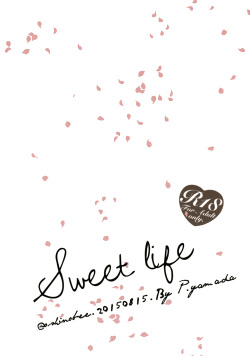 R18
For Adult
only.
Sweet life
20150815. By P.yamada